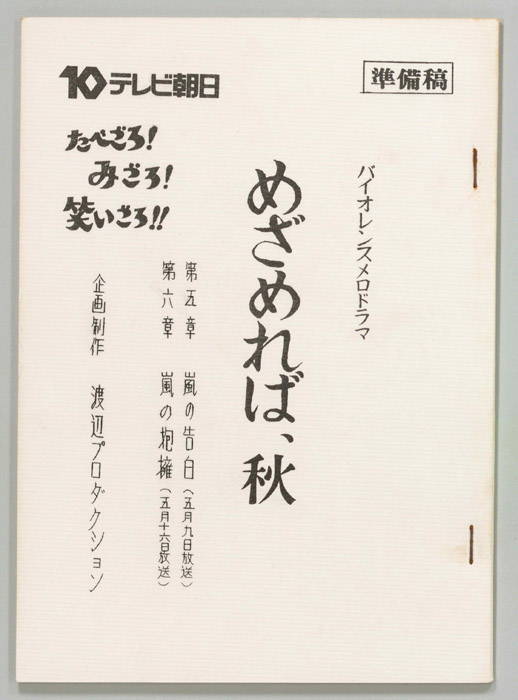 10テレビ朝日
準備稿
たべごろ!
みごろ!
笑いごろ!!
バイオレンスメロドラマ
めざめれば、秋
第五章 嵐の告白(五月九日放送)
第六章 嵐の抱擁(五月十六日放送)
企画制作 渡辺プロダクション